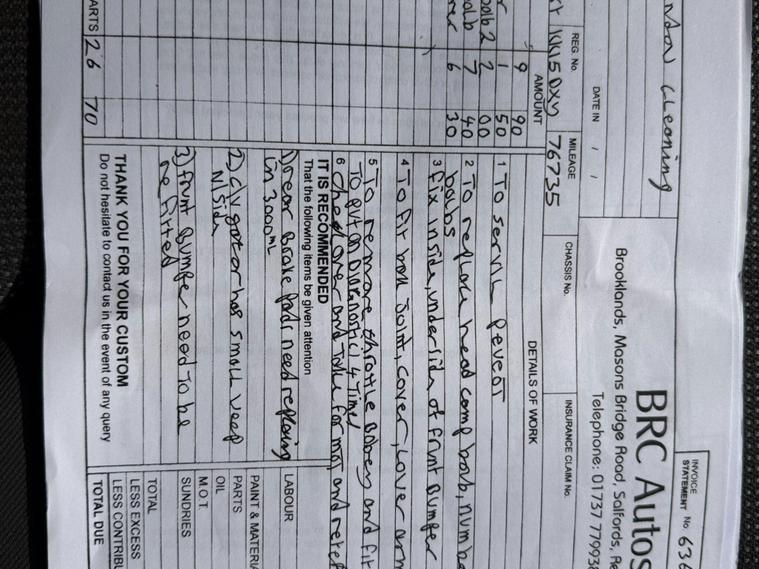 INVOICE
STATEMENT No. 636
BRC Autos
Brooklands, Masons Bridge Road, Salfords, Re
Telephone: 01737 77993
Cleaning
DATE IN / /
REG. No.
MILEAGE
CHASSIS No.
INSURANCE CLAIM No.
KK15 OXY
76735
AMOUNT
DETAILS OF WORK
9 90
1 50
bolb 2 2 00
7 40
6 30
1 To servic Peugot
2 To replace head comp bolb, numbe
bolbs
3 fix inside, underside of frunt Bumper
4 To fit boll Joint, cover, lover arm
5 To remove throttle Bobey and fit
To put on Diagnostic) 4 Time)
6 Check over and Take for mot and retet
IT IS RECOMMENDED
That the following items be given attention
1) rear Brake Pads need replacing
in 3000ml
2) C/V gator has small veep
N/Side
3) frunt Bumper need To be
re fitted
THANK YOU FOR YOUR CUSTOM
Do not hesitate to contact us in the event of any query
LABOUR
PAINT & MATERI
PARTS
OIL
M.O.T.
SUNDRIES
TOTAL
LESS EXCESS
LESS CONTRIBU
TOTAL DUE
ARTS 26 70